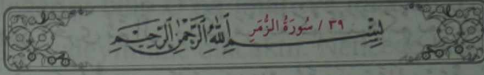 ٣٩ / سُورَةُ الزُّمَرِ
بِسْمِ اللَّهِ الرَّحْمَٰنِ الرَّحِيمِ